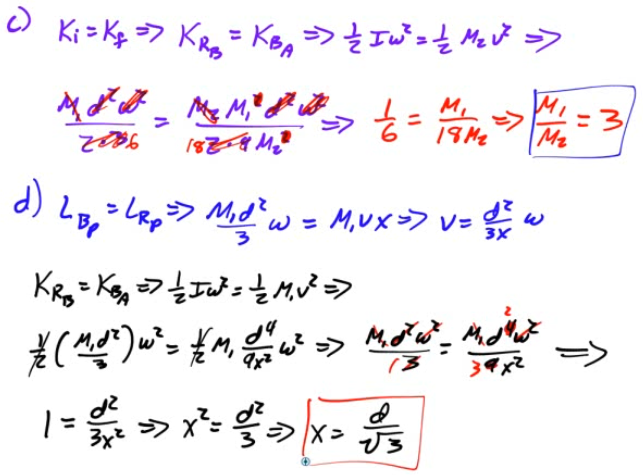 c) Ki = Kf => K_RB = K_BA => 1/2 Iω² = 1/2 M₂v² =>
M₁d²ω²/(2·3) 6 = M₂M₁²d²ω²/(18 2·9 M₂²) => 1/6 = M₁/(18M₂) => M₁/M₂ = 3
d) L_Bp = L_Rp => M₁d²/3 ω = M₁vx => v = d²/(3x) ω
K_RB = K_BA => 1/2 Iω² = 1/2 M₁v² =>
1/2 (M₁d²/3) ω² = 1/2 M₁ d⁴/(9x²) ω² => M₁d²ω²/(1 3) = M₁d⁴ ² ω²/(3 9x²) =>
1 = d²/(3x²) => x² = d²/3 => x = d/√3